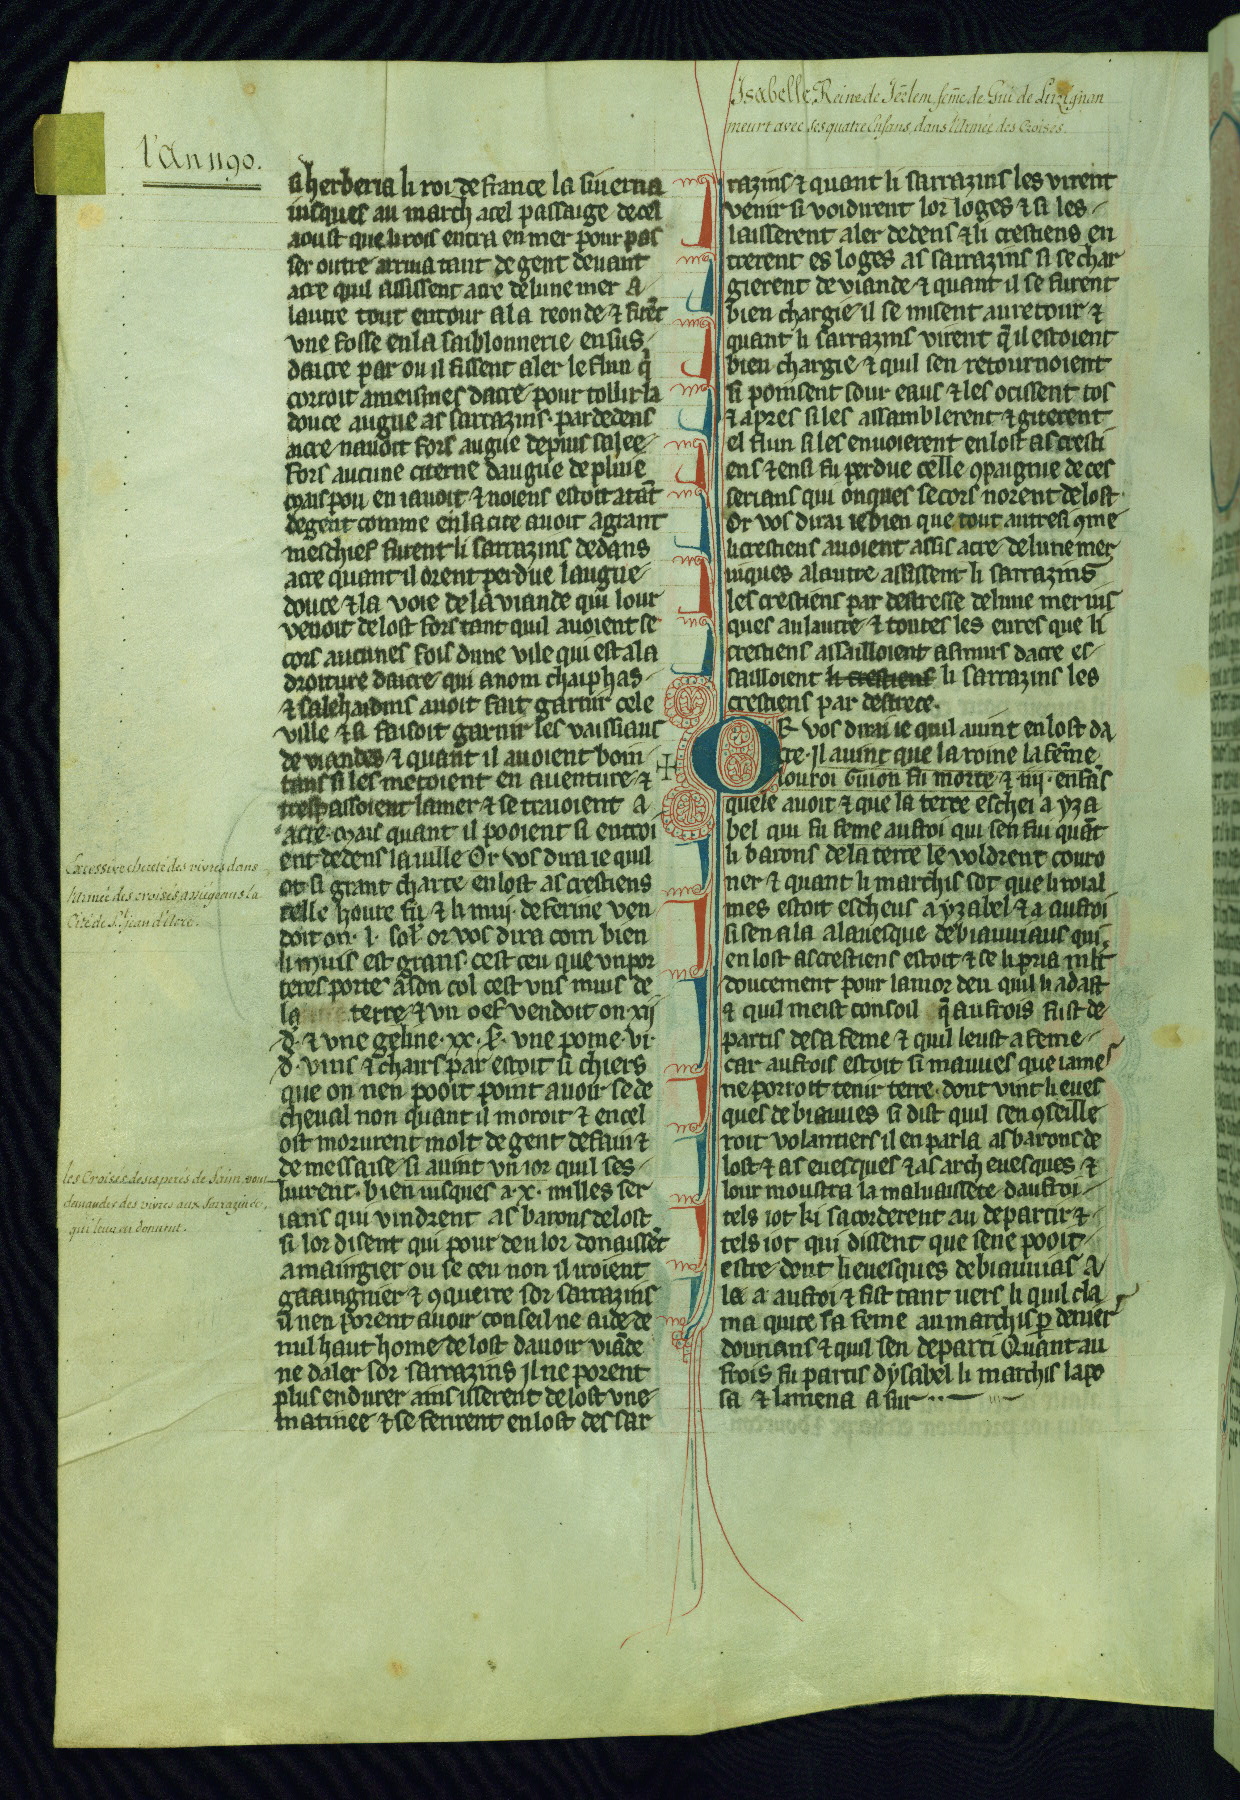 Isabelle, Reine de Jerlem, feme de Gui de Luzignan
meurt avec ses quatre Enfans, dans l'Armée des Croisés.
l'An 1190.
si herberia li roi de france la siuerna
iusques au march a cel passaige de cel
aoust que li rois entra en mer pour pas
ser outre arriua tant de gent deuant
acre quil assissent acre de lune mer a
lautre tout entour a la reonde ⁊ firēt
vne fosse en la saiblonnerie en sus
dacre par ou il fissent aler le flun q̄
corroit ameismes dacre pour tollir la
douce augue as sarrazins. par dedens
acre nauoit fors augue de puis salee
fors aucune citerne daugue de pluie
mais pou en i auoit ⁊ noiens estoit a tāt
de gent comme en la cite auoit a grant
meschief furent li sarrazins dedans
acre quant il orent perdue laugue
douce ⁊ la voie de la viande qui lour
venoit de lost fors tant quil auoient se
cors aucunes fois dune vile qui est a la
droiture dacre qui a nom chaiphas
⁊ salehadins auoit fait garnir cele
ville ⁊ si faisoit garnir les vaissiaus
de viandes ⁊ quant il auoient boin
tans si les metoient en auenture ⁊
trespassoient la mer ⁊ se trauoient a
acre. mais quant il pooient si entroi
ent dedens la uille Or vos dira ie quil
ot si grant charte en lost as crestiens
Excessive cherté des vivres dans
l'Armée des croisés assiégeans la
Cité de St jean d'Acre.
telle houre fu ⁊ li mui. de ferine ven
doit on. l. sol. or vos dira com bien
li muis est grans. cest ceu que vn por
teres porte a son col cest vns muis de
la terre ⁊ vn oef vendoit on xij
d. ⁊ vne geline. xx. s. vne pome. vi.
d. vins ⁊ chairs par estoit si chiers
que on nen pooit point auoir se de
cheual non quant il moroit ⁊ en cel
ost morurent molt de gent de fain ⁊
de messaise si auint vn ior quil ses
les Croisés desesperés de Faim, vont
demander des vivres aux Sarrazins,
qui leur en donnent.
luirent. bien iusques a. x. milles ser
ians qui vindrent as barons de lost
si lor disent qui pour deu lor donaissēt
a maingier ou se ceu non il iroient
gaaingnier ⁊ ꝯquerre sor sarrazins
il nen porent auoir conseil ne aide de
nul haut home de lost dauoir viāde
ne daler sor sarrazins Il ne porent
plus endurer ains isserent de lost vne
matinee ⁊ se ferirent en lost des sar
razins ⁊ quant li sarrazins les virent
venir si voidirent lor loges ⁊ si les
laisserent aler dedens ⁊ li crestiens en
trerent es loges as sarrazins si se char
gierent de viande ⁊ quant il se furent
bien chargie il se misent au retour ⁊
quant li sarrazins virent q̄ il estoient
bien chargie ⁊ quil sen retournoient
si poinsent sour eaus ⁊ les ocissent tos
⁊ apres si les assamblerent ⁊ giterent
el flun si les enuoierent en lost as cresti
ens ⁊ ensi fu perdue celle ꝯpaignie de ces
serians qui onques secors norent de lost.
Or vos dirai ie bien que tout autresi ꝯme
li crestiens auoient assis acre de lune mer
iuques a lautre assissent li sarrazins
les crestiens par destresse de lune mer ius
ques au lautre ⁊ toutes les eures que li
crestiens assailloient as murs dacre es
sailloient li crestiens li sarrazins les
crestiens par destrece.
OR vos dirai ie quil auint en lost da
cre. Il auint que la roine la feme
lou roi Guion fu morte ⁊ iiij. enfans
quele auoit ⁊ que la terre eschei a yza
bel qui fu feme aufroi qui sen fui quāt
li barons de la terre le voldrent couro
ner ⁊ quant li marchis sot que li roial
mes estoit escheus a yzabel ⁊ a aufroi
si sen ala a lauesque de biauuiaus qui
en lost as crestiens estoit ⁊ se li pria mlt
doucement pour lamor deu quil li adast
⁊ quil meist consoil q̄ aufrois fust de
partis de sa feme ⁊ quil leust a feme
car aufrois estoit si mauues que iames
ne porroit tenir terre. dont vint li eues
ques de biauues si dist quil sen ꝯseille
roit volantiers il en parla as barons de
lost ⁊ as euesques ⁊ as arch euesques ⁊
lour moustra la maluaissete daufroi
tels iot ki sacorderent au departir ⁊
tels iot qui dissent que sene pooit
estre. dont li euesques de biauuias a
la a aufroi ⁊ fist tant uers li quil cla
ma quite sa feme au marchis p̱ denier
donans ⁊ quil sen departi Quant au
frois fu partis dysabel li marchis lapo
sa ⁊ lamena a sur